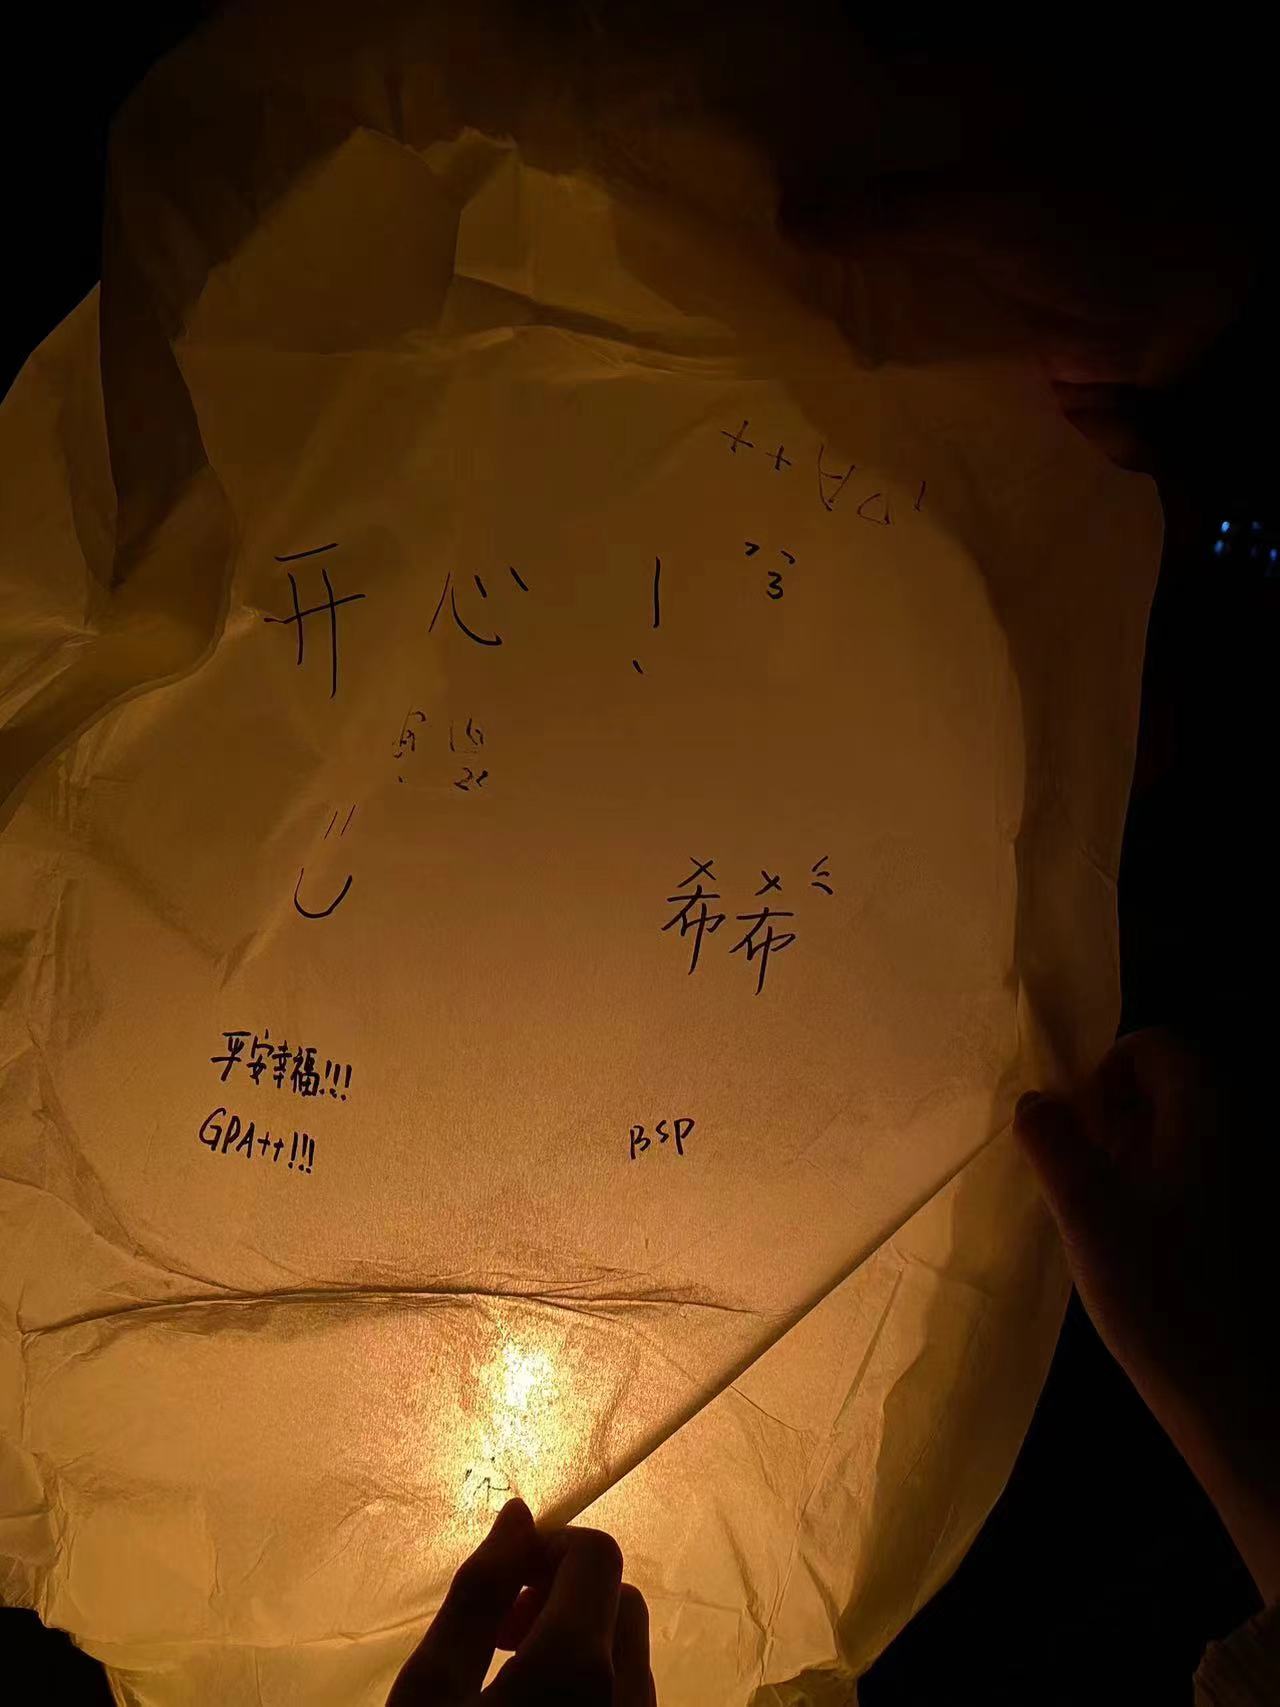 开心!
希希
平安幸福!!!
GPA++!!!
BSP